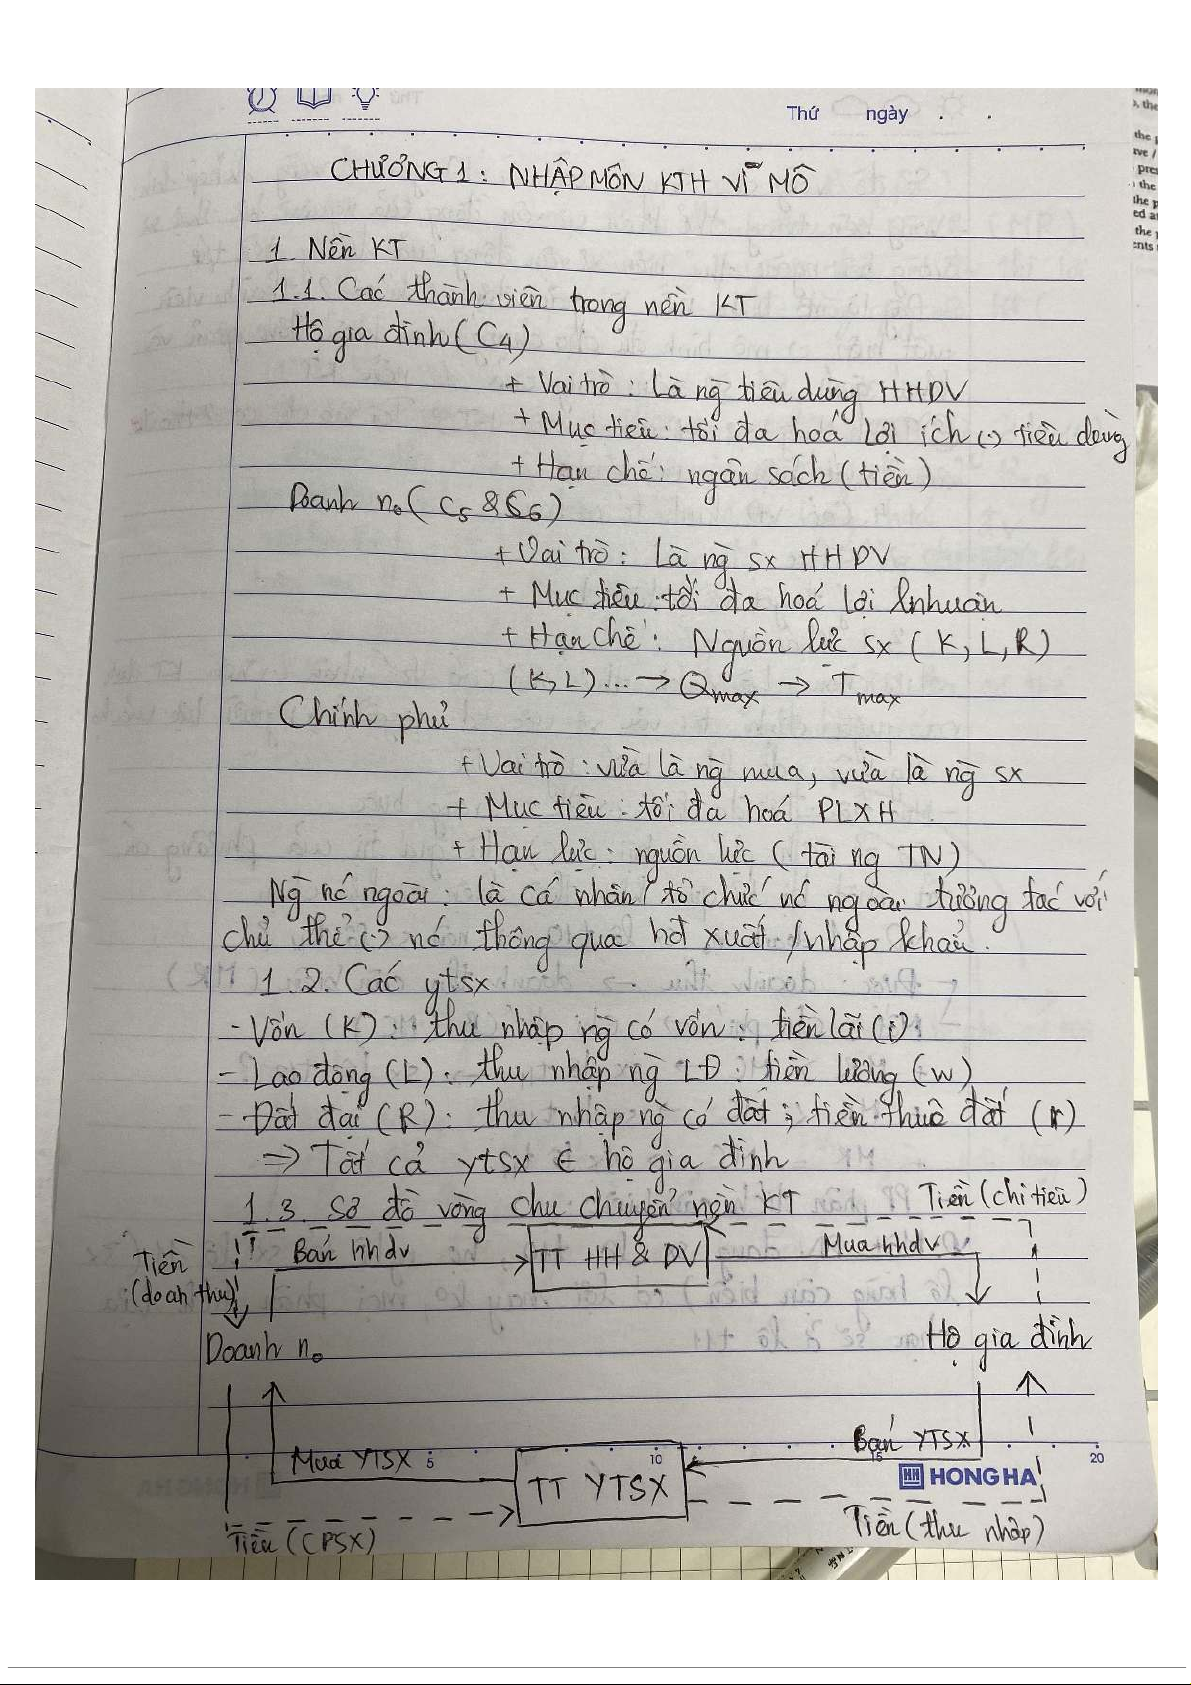 Thứ ngày . .
CHƯƠNG 1: NHẬP MÔN KTH VĨ MÔ
1. Nền KT
1.1. Các thành viên trong nền KT
Hộ gia đình (C4)
+ Vai trò: Là ng̀ tiêu dùng HHDV
+ Mục tiêu: tối đa hoá lợi ích (.) tiêu dùng
+ Hạn chế: ngân sách (tiền)
Doanh no (C5 & C6)
+ Vai trò: Là ng̀ sx HHDV
+ Mục tiêu: tối đa hoá lợi nhuận
+ Hạn chế: Nguồn lực sx (K, L, R)
(K, L) ... → Qmax → Tmax
Chính phủ
+ Vai trò: vừa là ng̀ mua, vừa là ng̀ sx
+ Mục tiêu: tối đa hoá PLXH
+ Hạn lực: nguồn lực (tài ng TN)
Ng̀ nc ngoài: là cá nhân / tổ chức nc ngoài tương tác với
chủ thể (.) nc thông qua hđ xuất / nhập khẩu.
1.2. Các ytsx
- Vốn (K): thu nhập ng̀ có vốn: tiền lãi (i)
- Lao động (L): thu nhập ng̀ LĐ: tiền lương (w)
- Đất đai (R): thu nhập ng̀ có đất; tiền thuê đất (r)
⇒ Tất cả ytsx ∈ hộ gia đình
1.3. Sơ đồ vòng chu chuyển nền KT
Tiền (chi tiêu)
Tiền
(doanh thu)
Bán hhdv
TT HH & DV
Mua hhdv
Doanh no
Hộ gia đình
Mua YTSX
TT YTSX
Bán YTSX
5 10 15 20
HONG HA
Tiền (CPSX)
Tiền (thu nhập)